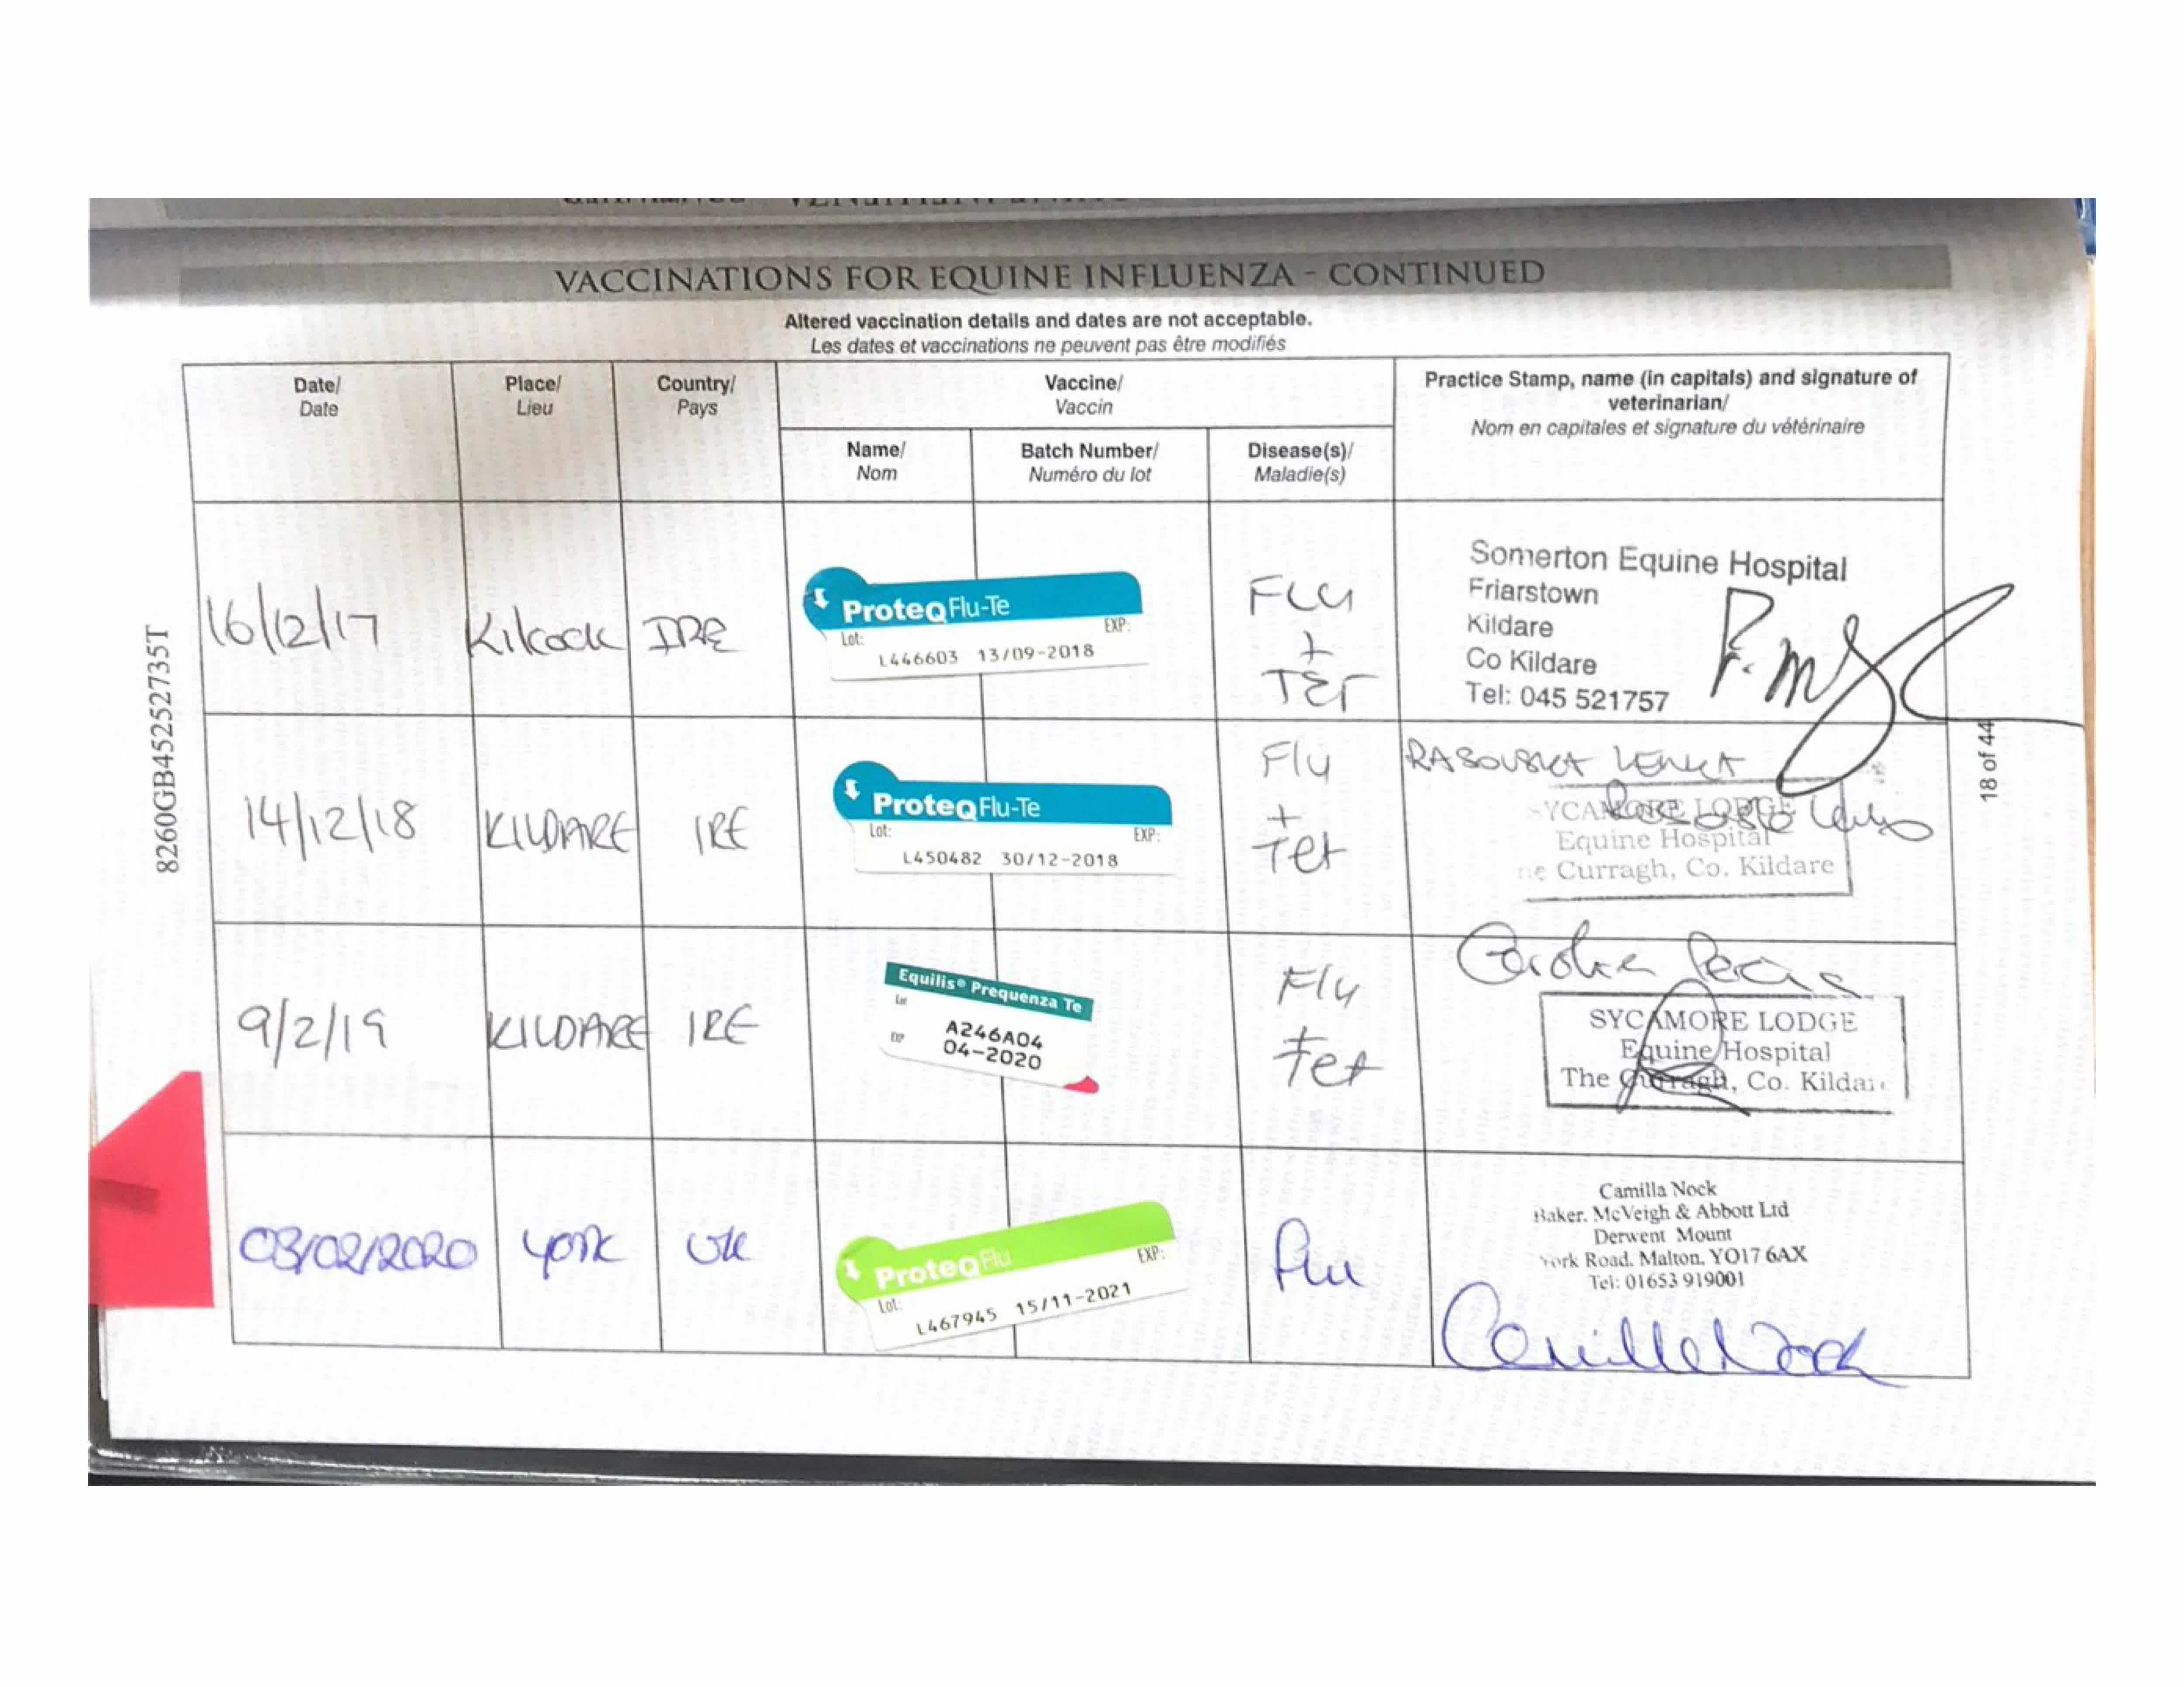 VACCINATIONS FOR EQUINE INFLUENZA - CONTINUED
Altered vaccination details and dates are not acceptable.
Les dates et vaccinations ne peuvent pas être modifiés
Date/
Date
Place/
Lieu
Country/
Pays
Vaccine/
Vaccin
Practice Stamp, name (in capitals) and signature of
veterinarian/
Nom en capitales et signature du vétérinaire
Name/
Nom
Batch Number/
Numéro du lot
Disease(s)/
Maladie(s)
16/12/17
Kilcock
IRE
ProteqFlu-Te
Lot: EXP:
L446603 13/09-2018
FLU
+
TET
Somerton Equine Hospital
Friarstown
Kildare
Co Kildare
Tel: 045 521757
14/12/18
KILDARE
IRE
ProteqFlu-Te
Lot: EXP:
L450482 30/12-2018
Flu
+
Tet
LENKA
SYCAMORE LODGE
Equine Hospital
Curragh, Co. Kildare
9/2/19
KILDARE
IRE
Equilis® Prequenza Te
Lot
A246A04
EXP
04-2020
Flu
Tet
SYCAMORE LODGE
Equine Hospital
The Curragh, Co. Kildar
03/02/2020
York
UK
ProteqFlu
Lot: EXP:
L467945 15/11-2021
Flu
Camilla Nock
Baker, McVeigh & Abbott Ltd
Derwent Mount
York Road, Malton, YO17 6AX
Tel: 01653 919001
Camilla Nock
8260GB452527735T
18 of 44